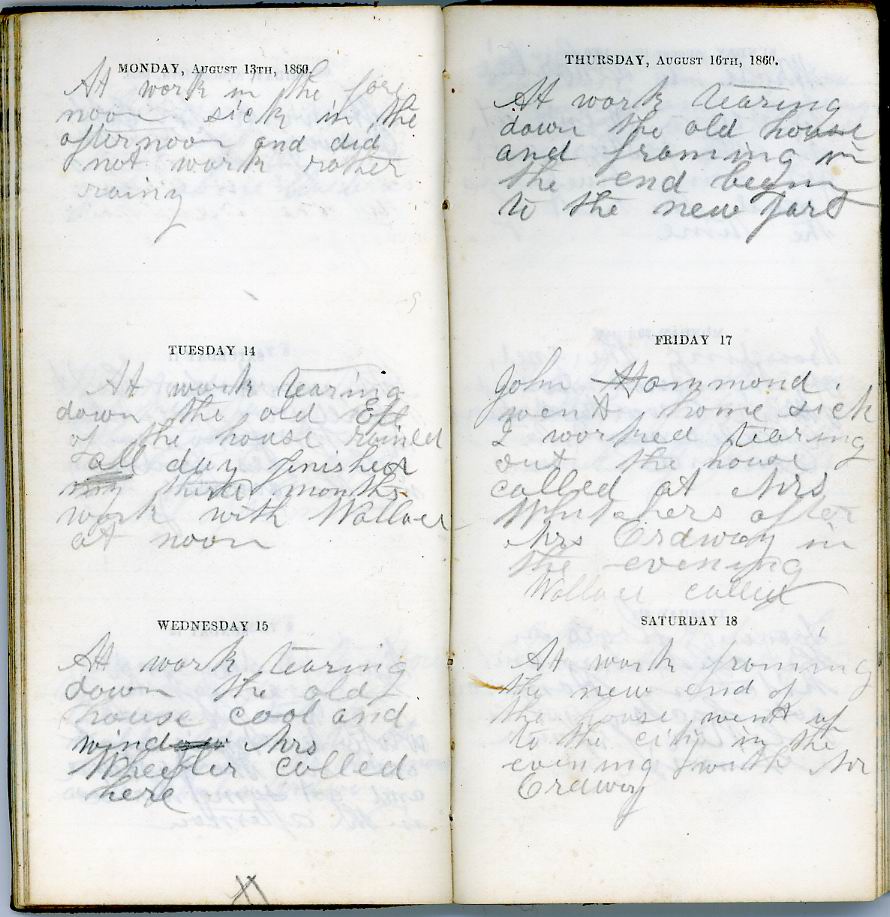 MONDAY, AUGUST 13TH, 1860.
At work in the fore
noon sick in the
afternoon and did
not work rather
rainy
TUESDAY 14
At work tearing
down the old Ell
of the house rained
all day finished
my three months
work with Wallace
at noon
WEDNESDAY 15
At work tearing
down the old
house cool and
wind Mrs
Wheeler called
here
THURSDAY, AUGUST 16TH, 1860.
At work tearing
down the old house
and framing in
the end begun
to the new part
FRIDAY 17
John Hammond
went home sick
I worked tearing
out the house
called at Mrs
Whitchers after
Mrs Erdway in
the evening
Wallace called
SATURDAY 18
At work framing
the new end of
the house went up
to the city in the
evening with Mr
Erdway